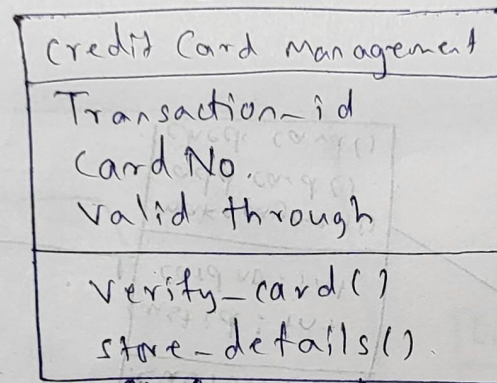 Credit Card Management
Transaction_id
Card No.
Valid through
verify_card()
store_details().